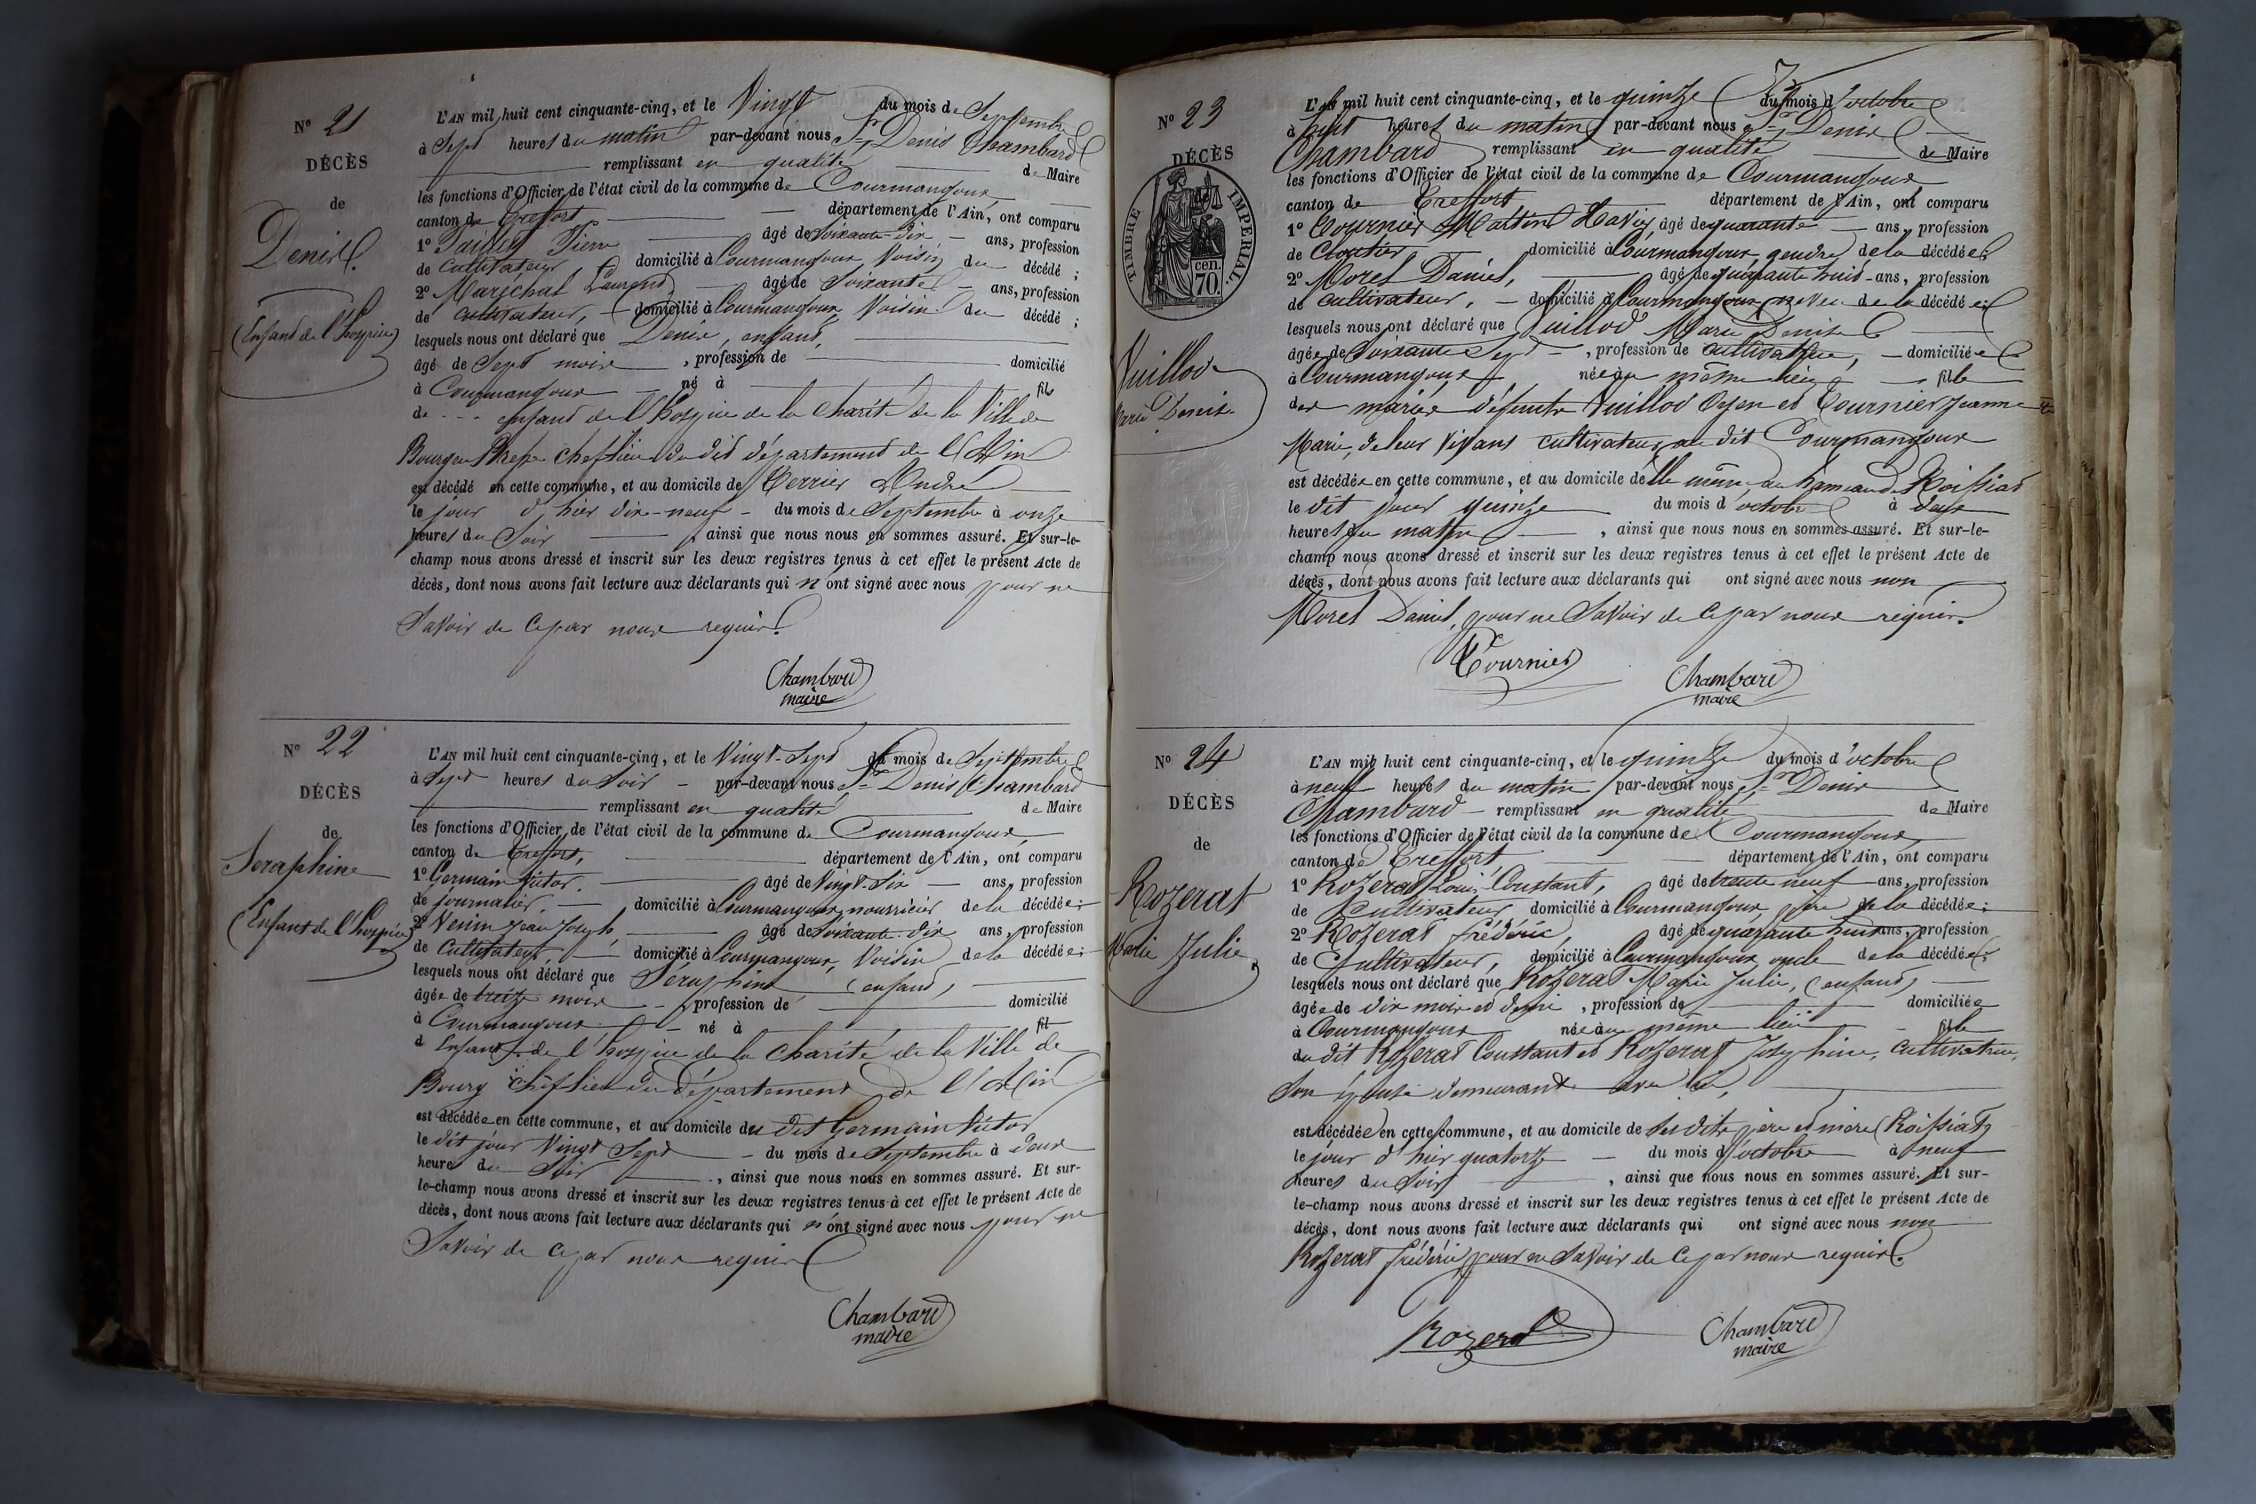 N° 21
DÉCÈS
de
Denis.
(Enfant de l'hospice)
L'AN mil huit cent cinquante-cinq, et le Vingt du mois de Septembre
à Sept heures du matin par-devant nous Sr Denis Chambard
remplissant en qualité de Maire
les fonctions d'Officier de l'état civil de la commune de Courmangoux
canton de Treffort département de l'Ain, ont comparu
1° Pierre âgé de Soixante-dix ans, profession
de Cultivateur domicilié à Courmangoux Voisin du décédé;
2° Maréchal Laurent âgé de Soixante ans, profession
de Cultivateur, domicilié à Courmangoux Voisin du décédé;
lesquels nous ont déclaré que Denis, enfant,
âgé de Sept mois, profession de domicilié
à Courmangoux né à fils
de enfant de l'hospice de la Charité de la Ville de
Bourg en Bresse chef lieu du dit département de l'Ain
est décédé en cette commune, et au domicile de Perrier André
le jour d'hier dix-neuf du mois de Septembre à onze
heures du Soir, ainsi que nous nous en sommes assuré. Et sur-le-
champ nous avons dressé et inscrit sur les deux registres tenus à cet effet le présent Acte de
décès, dont nous avons fait lecture aux déclarants qui n'ont signé avec nous pour ne
Savoir de ce par nous requis.
Chambard
maire
N° 22
DÉCÈS
de
Seraphine
(Enfant de l'hospice)
L'AN mil huit cent cinquante-cinq, et le Vingt-Sept du mois de Septembre
à Sept heures du Soir par-devant nous Sr Denis Chambard
remplissant en qualité de Maire
les fonctions d'Officier de l'état civil de la commune de Courmangoux,
canton de Treffort, département de l'Ain, ont comparu
1° Germain Victor. âgé de Vingt-Six ans, profession
de Journalier, domicilié à Courmangoux, nourricier de la décédée;
2° Venin Jean Joseph, âgé de Soixante-dix ans, profession
de Cultivateur, domicilié à Courmangoux, Voisin de la décédée;
lesquels nous ont déclaré que Seraphine (enfant),
âgée de treize mois, profession de domicilié
à Courmangoux né à fil
d Enfant de l'hospice de la Charité de la Ville de
Bourg chef lieu du département de l'Ain
est décédée en cette commune, et au domicile du dit Germain Victor
le dit jour Vingt Sept du mois de Septembre à deux
heures du Soir, ainsi que nous nous en sommes assuré. Et sur-
le-champ nous avons dressé et inscrit sur les deux registres tenus à cet effet le présent Acte de
décès, dont nous avons fait lecture aux déclarants qui n'ont signé avec nous pour ne
Savoir de ce par nous requis
Chambard
maire
N° 23
DÉCÈS
de
TIMBRE IMPERIAL.
70 cen.
Vuillod
Marie Denise
L'AN mil huit cent cinquante-cinq, et le quinze du mois d'octobre
à huit heures du matin par-devant nous Sr Denis
Chambard remplissant en qualité de Maire
les fonctions d'Officier de l'état civil de la commune de Courmangoux
canton de Treffort département de l'Ain, ont comparu
1° Tournier Martin Xavier, âgé de quarante ans, profession
de Cloutier domicilié à Courmangoux, gendre de la décédée;
2° Morel Daniel, âgé de quarante huit ans, profession
de Cultivateur, domicilié à Courmangoux neveu de la décédée;
lesquels nous ont déclaré que Vuillod Marie Denise
âgée de Soixante Sept, profession de cultivatrice, domiciliée
à Courmangoux née au même lieu fille
des mariés défunts Vuillod Oyen et Tournier Jeanne
Marie, de leur Vivant cultivateurs au dit Courmangoux
est décédée en cette commune, et au domicile d'elle même au hameau de Roissiat
le dit jour quinze du mois d'octobre à deux
heures du matin, ainsi que nous nous en sommes assuré. Et sur-le-
champ nous avons dressé et inscrit sur les deux registres tenus à cet effet le présent Acte de
décès, dont nous avons fait lecture aux déclarants qui ont signé avec nous non
Morel Daniel, pour ne Savoir de ce par nous requis.
Tournier
Chambard
maire
N° 24
DÉCÈS
de
Rozerat
Marie Julie,
L'AN mil huit cent cinquante-cinq, et le quinze du mois d'octobre
à neuf heures du matin par-devant nous Sr Denis
Chambard remplissant en qualité de Maire
les fonctions d'Officier de l'état civil de la commune de Courmangoux,
canton de Treffort département de l'Ain, ont comparu
1° Rozerat Louis Constant, âgé de trente neuf ans, profession
de Cultivateur domicilié à Courmangoux père de la décédée;
2° Rozerat frédéric, âgé de quarante huit ans, profession
de Cultivateur, domicilié à Courmangoux oncle de la décédée;
lesquels nous ont déclaré que Rozerat Marie Julie, (enfant)
âgée de dix mois et demi, profession de domiciliée
à Courmangoux née au même lieu fille
du dit Rozerat Constant et Rozerat Joséphine, Cultivatrice,
Son épouse demeurant avec lui,
est décédée en cette commune, et au domicile de Ses dits père et mère (Roissiat)
le jour d'hier quatorze du mois d'octobre à neuf
heures du Soir, ainsi que nous nous en sommes assuré. Et sur-
le-champ nous avons dressé et inscrit sur les deux registres tenus à cet effet le présent Acte de
décès, dont nous avons fait lecture aux déclarants qui ont signé avec nous non
Rozerat frédéric pour ne Savoir de ce par nous requis.
Rozerat
Chambard
maire